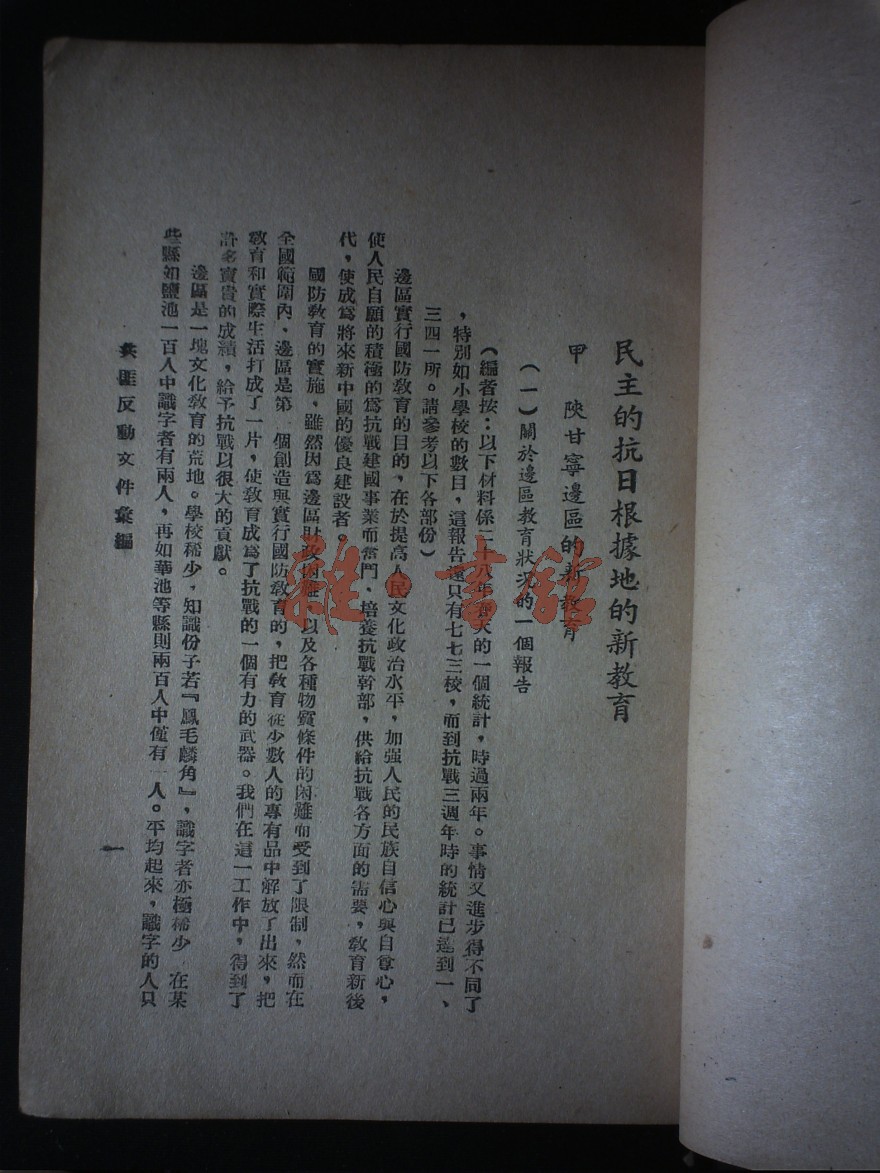 民主的抗日根據地的新教育
甲 陝甘寧邊區的新教育
（一）關於邊區教育狀况的一個報告
（編者按：以下材料係二十八年春天的一個統計，時過兩年。事情又進步得不同了
，特別如小學校的數目，這報告還只有七七三校，而到抗戰三週年時的統計已達到一、
三四一所。請參考以下各部份）
邊區實行國防教育的目的，在於提高人民文化政治水平，加强人民的民族自信心與自尊心，
使人民自願的積極的爲抗戰建國事業而奮鬥，培養抗戰幹部，供給抗戰各方面的需要，教育新後
代，使成爲將來新中國的優良建設者。
國防教育的實施，雖然因爲邊區財政困難，以及各種物質條件的困難而受到了限制，然而在
全國範圍內，邊區是第一個創造與實行國防教育的，把教育從少數人的專有品中解放了出來，把
教育和實際生活打成了一片，使教育成爲了抗戰的一個有力的武器。我們在這一工作中，得到了
許多寶貴的成績，給予抗戰以很大的貢獻。
邊區是一塊文化教育的荒地。學校稀少，知識份子若『鳳毛麟角』，識字者亦極稀少，在某
些縣如鹽池一百人中識字者有兩人，再如華池等縣則兩百人中僅有一人。平均起來，識字的人只
共匪反動文件彙編
一
雜·書館